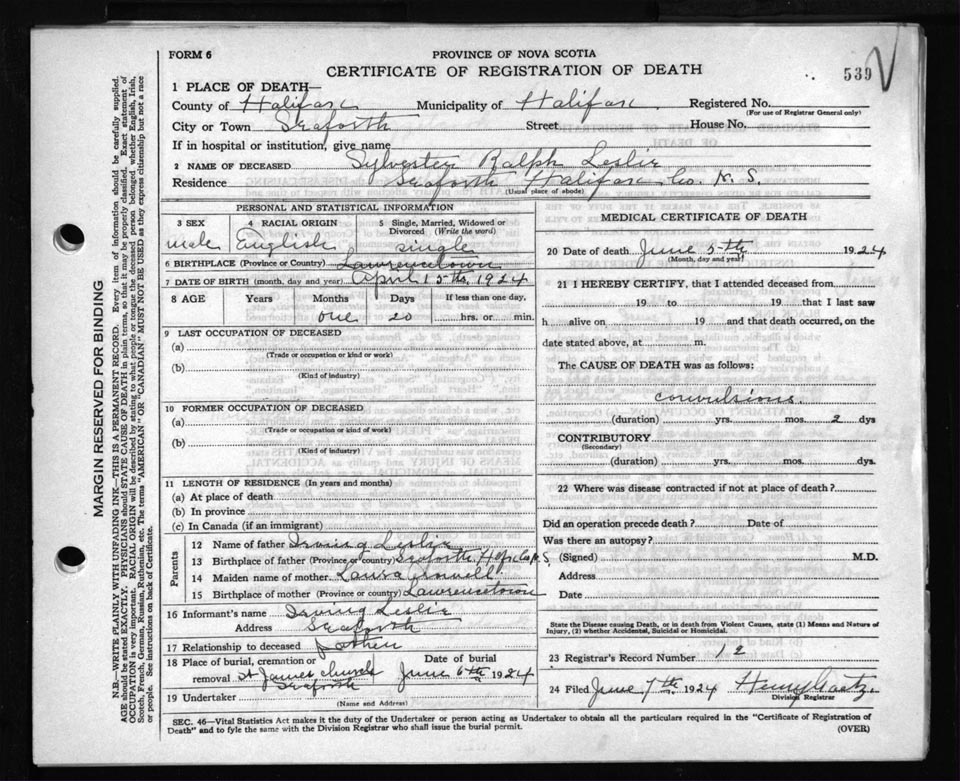 FORM 6
PROVINCE OF NOVA SCOTIA
CERTIFICATE OF REGISTRATION OF DEATH
539
1 PLACE OF DEATH—
County of Halifax Municipality of Halifax Registered No.
(For use of Registrar General only)
City or Town Seaforth Street House No.
If in hospital or institution, give name
2 NAME OF DECEASED Sylvester Ralph Leslie
Residence Seaforth Halifax Co. N. S.
(Usual place of abode)
PERSONAL AND STATISTICAL INFORMATION
3 SEX 4 RACIAL ORIGIN 5 Single, Married, Widowed or Divorced (Write the word)
male English single
6 BIRTHPLACE (Province or Country) Lawrencetown
7 DATE OF BIRTH (month, day, and year) April 15th 1924
8 AGE Years Months Days If less than one day,
one 20 hrs. or min.
9 LAST OCCUPATION OF DECEASED
(a)
(Trade or occupation or kind or work)
(b)
(Kind of industry)
10 FORMER OCCUPATION OF DECEASED
(a)
(Trade or occupation or kind of work)
(b)
(Kind of industry)
11 LENGTH OF RESIDENCE (In years and months)
(a) At place of death
(b) In province
(c) In Canada (if an immigrant)
Parents
12 Name of father Irving Leslie
13 Birthplace of father (Province or country) Seaforth Hfx Co N S
14 Maiden name of mother Laura
15 Birthplace of mother (Province or country) Lawrencetown
16 Informant's name Irving Leslie
Address Seaforth
17 Relationship to deceased father
18 Place of burial, cremation or removal St James church Seaforth
Date of burial June 6th 1924
19 Undertaker
(Name and Address)
MEDICAL CERTIFICATE OF DEATH
20 Date of death June 5th 1924
(Month, day and year)
21 I HEREBY CERTIFY, that I attended deceased from
19 to 19 that I last saw
h alive on 19 and that death occurred, on
date stated above, at m.
The CAUSE OF DEATH was as follows:
convulsions.
(duration) yrs. mos. 2 dys
CONTRIBUTORY
(Secondary)
(duration) yrs. mos. dys.
22 Where was disease contracted if not at place of death?
Did an operation precede death? Date of
Was there an autopsy?
(Signed) M.D.
Address
Date
State the Disease causing Death, or in death from Violent Causes, state (1) Means and Nature of
Injury, (2) whether Accidental, Suicidal or Homicidal.
23 Registrar's Record Number 12
24 Filed June 7th 1924 Henry
Division Registrar
SEC. 46—Vital Statistics Act makes it the duty of the Undertaker or person acting as Undertaker to obtain all the particulars required in the "Certificate of Registration of
Death" and to fyle the same with the Division Registrar who shall issue the burial permit.
(OVER)
MARGIN RESERVED FOR BINDING
N.B.—WRITE PLAINLY WITH UNFADING INK—THIS IS A PERMANENT RECORD. Every item of information should be carefully supplied.
AGE should be stated EXACTLY. PHYSICIANS should STATE CAUSE OF DEATH in plain terms, so that it may be properly classified. Exact statement of
OCCUPATION is very important. RACIAL ORIGIN will be described by stating to what people or tongue the deceased person belonged whether English, Irish,
Scotch, French, German, Russian, Ruthenian, etc. The terms "AMERICAN" OR "CANADIAN" MUST NOT BE USED as they express citizenship but not a race
or people. See instructions on back of Certificate.